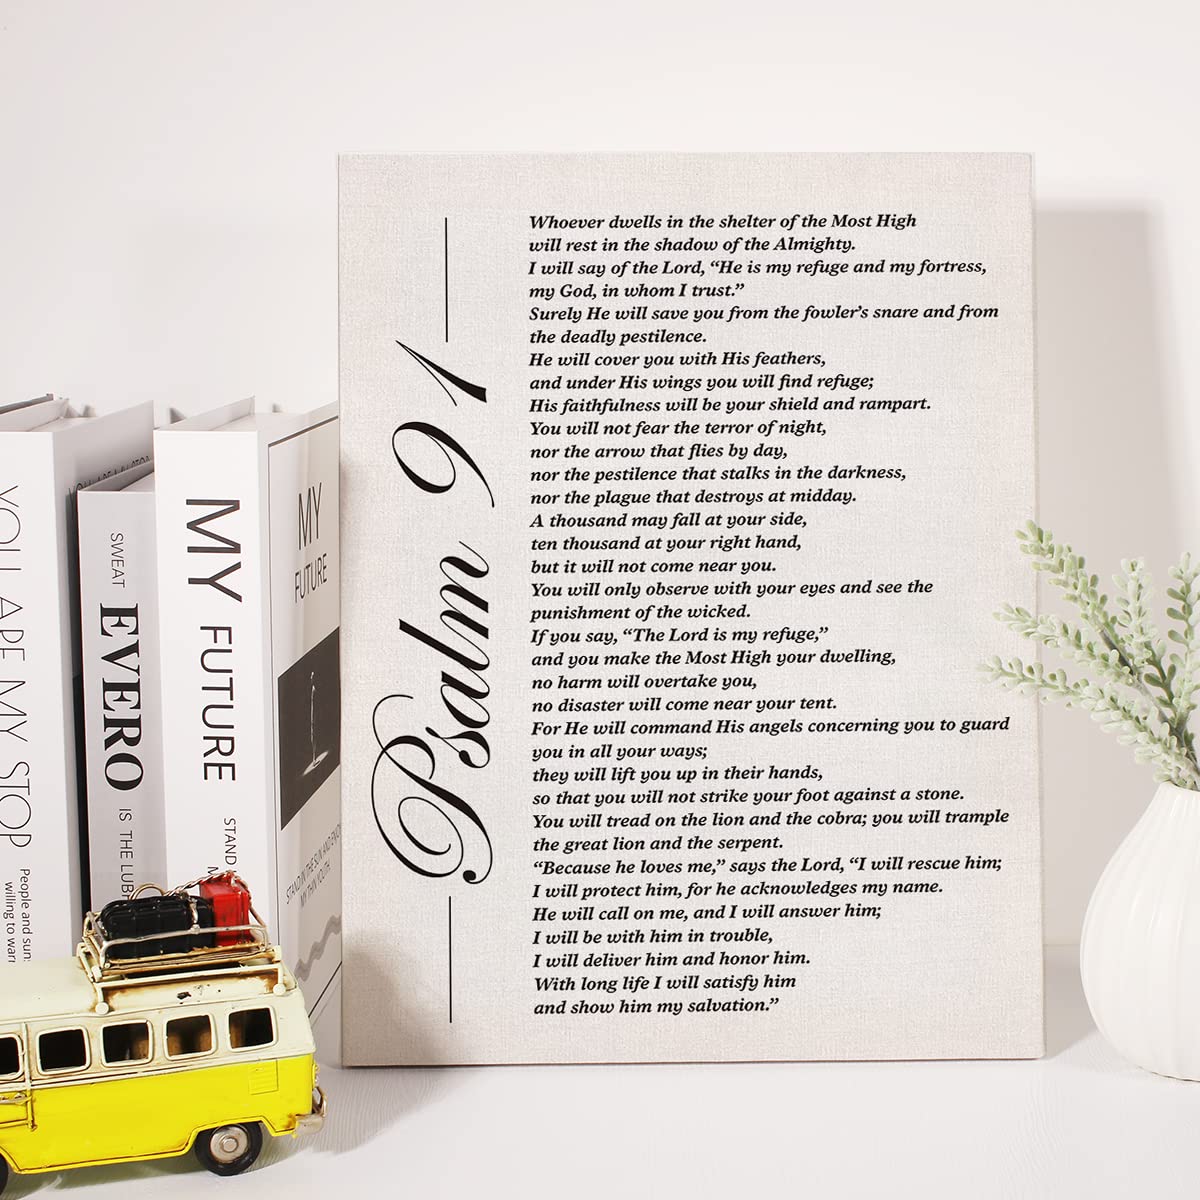 YOU ARE MY STOP
People and suns
willing to warm
YOU ARE MY STOP
SWEAT EVERO IS THE LUB
MY FUTURE STAND
MY
FUTURE
STAND IN THE SUN AND ENJOY
MY THIN YOUTH
Psalm 91
Whoever dwells in the shelter of the Most High
will rest in the shadow of the Almighty.
I will say of the Lord, “He is my refuge and my fortress,
my God, in whom I trust.”
Surely He will save you from the fowler’s snare and from
the deadly pestilence.
He will cover you with His feathers,
and under His wings you will find refuge;
His faithfulness will be your shield and rampart.
You will not fear the terror of night,
nor the arrow that flies by day,
nor the pestilence that stalks in the darkness,
nor the plague that destroys at midday.
A thousand may fall at your side,
ten thousand at your right hand,
but it will not come near you.
You will only observe with your eyes and see the
punishment of the wicked.
If you say, “The Lord is my refuge,”
and you make the Most High your dwelling,
no harm will overtake you,
no disaster will come near your tent.
For He will command His angels concerning you to guard
you in all your ways;
they will lift you up in their hands,
so that you will not strike your foot against a stone.
You will tread on the lion and the cobra; you will trample
the great lion and the serpent.
“Because he loves me,” says the Lord, “I will rescue him;
I will protect him, for he acknowledges my name.
He will call on me, and I will answer him;
I will be with him in trouble,
I will deliver him and honor him.
With long life I will satisfy him
and show him my salvation.”